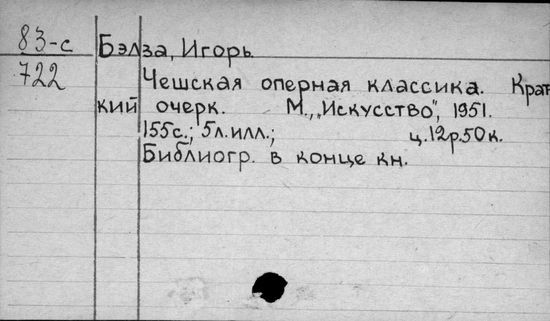 83-с Бэлза, Игорь
722 Чешская оперная классика. Крат
кий очерк. М., „Искусство", 1951.
155с.; 5л.илл.; ц.12р.50к.
Библиогр. в конце кн.